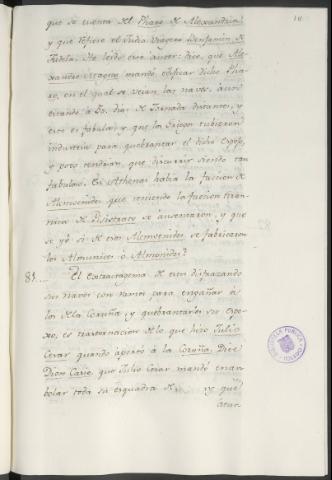 que se cuenta del Pharo de Alexandria
y que refiere el Judio viagero Benjamin de
Tudela. He leido este autor: dice, que Ale-
xandro Magno mandó edificar dicho Pha-
ro, en el qual se veian las naves, aun
estando à 50. dias de Jornada distantes, y
esto es fabula; y que los Griegos tubieron
industria para quebrantar el dicho espejo,
y poco tendrian que discurrir siendo tan
fabuloso. En Athenas habia la faccion de
Alcmeonides que venciendo la faccion tira-
nica de Pisistrato se ausentaron, y que
se yo si de esos Alcmeonides se fabricaron
los Almunides ò Almonides?
81. El estratagema de esos disfrazando
sus naves con ramos para engañar à
los de la Coruña y quebrantarles su espe-
jo, es trastornacion de lo que hizo Julio
Cesar quando aportó à la Coruña. Dice
Dion Casio que Julio Cesar mandó enar-
bolar toda su esquadra &. y que
BIBLIOTECA PUBLICA
TOLEDO